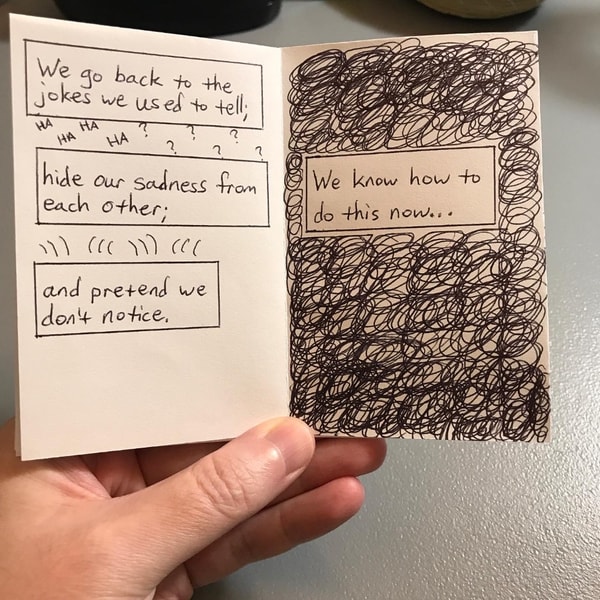 We go back to the
jokes we used to tell;
HA HA ? ? ?
HA HA ? ? ?
hide our sadness from
each other;
))) ((( ))) (((
and pretend we
don't notice.
We know how to
do this now...